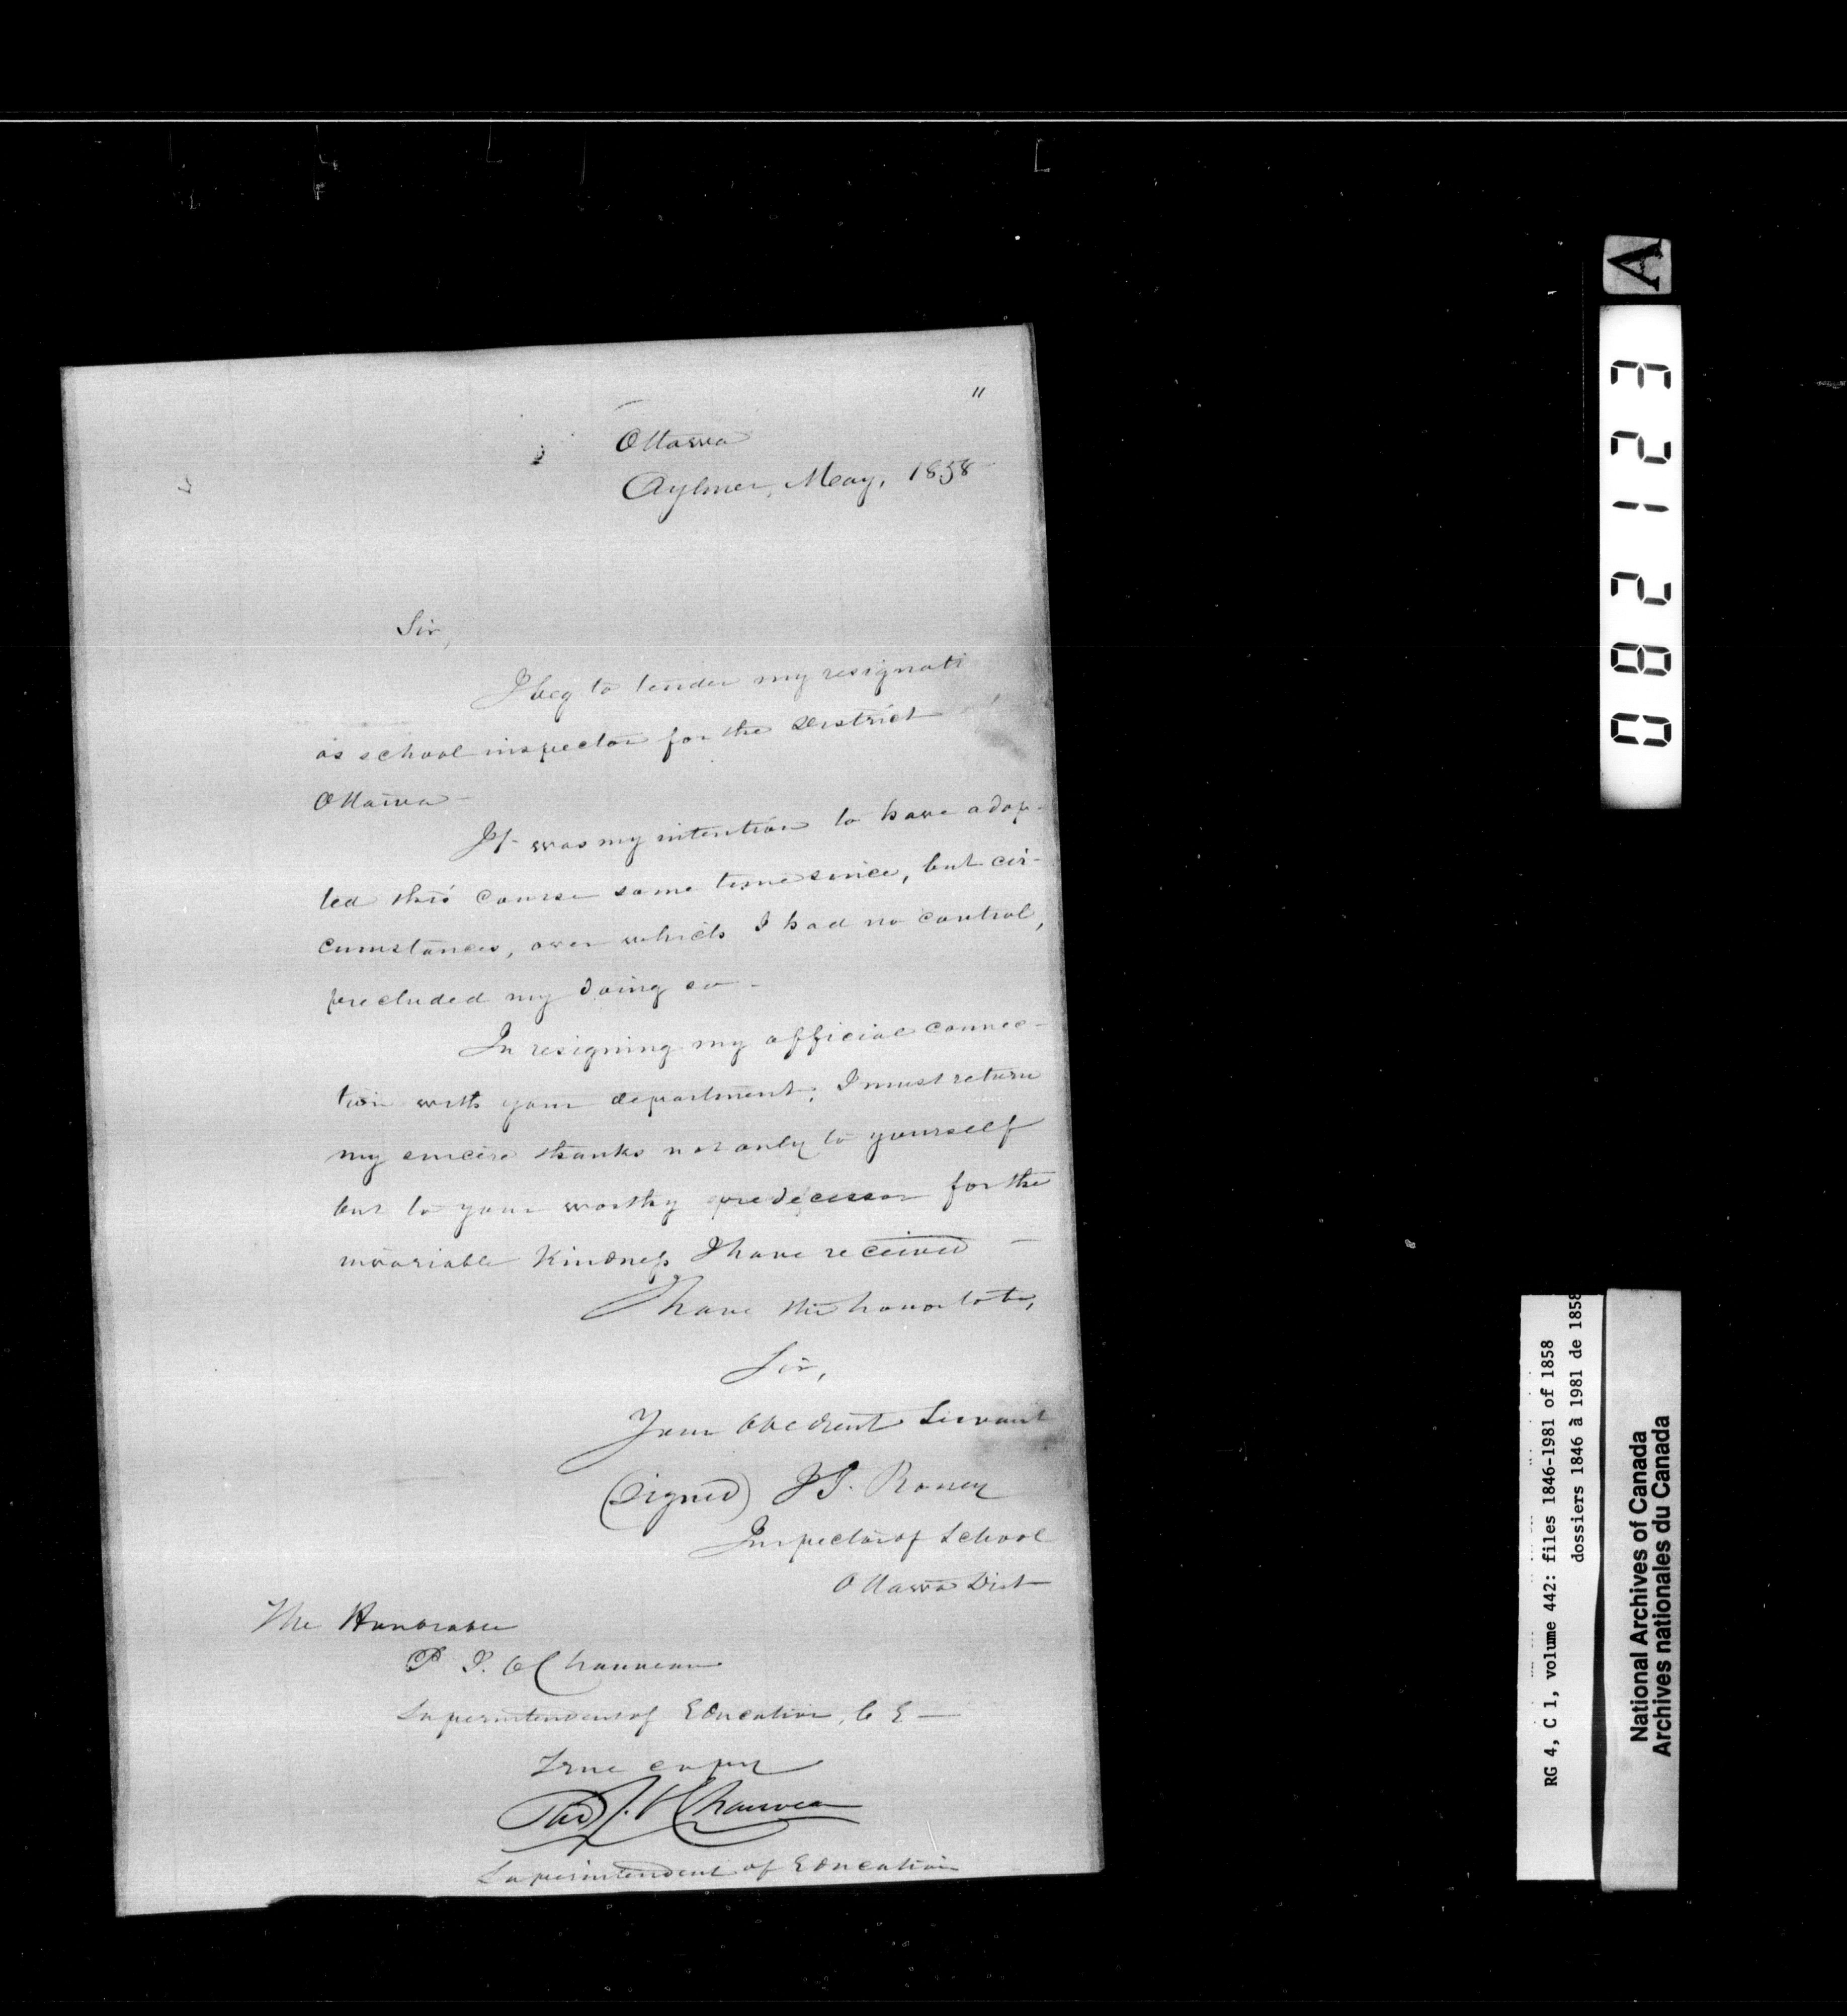 11
Ottawa
Aylmer, May, 1858
Sir,
I beg to tender my resignati
as school inspector for the District
Ottawa -
It was my intention to have adop-
ted this course some time since, but cir-
cumstances, over which I had no control,
precluded my doing so -
In resigning my official connec-
tion with your department, I must return
my sincere thanks not only to yourself
but to your worthy predecessor for the
invariable Kindness I have received —
I have the honor to be,
Sir,
Your Obedient Servant
(Signed)
Inspector of School
Ottawa Dist
The Honorable
P. J. O Chauveau
Superintendent of Education, C E —
True copy
Chauveau
Superintendent of Education
A
082123
RG 4, C 1, volume 442: files 1846-1981 of 1858
dossiers 1846 à 1981 de 1858
National Archives of Canada
Archives nationales du Canada